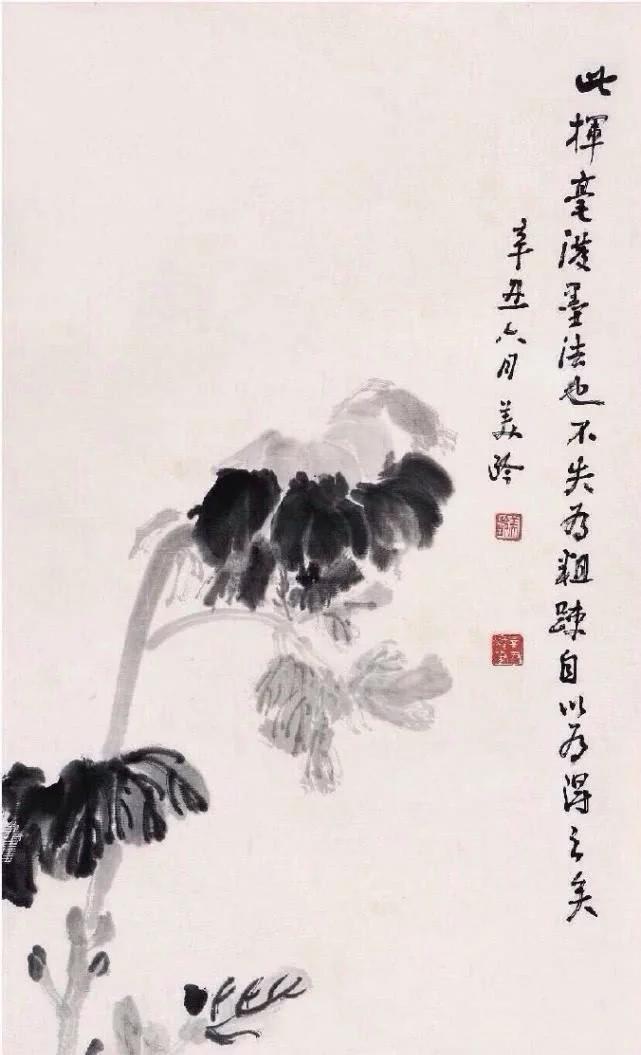 此揮毫潑墨法也不失為粗疎自以為得之矣
辛丑六月 美齡